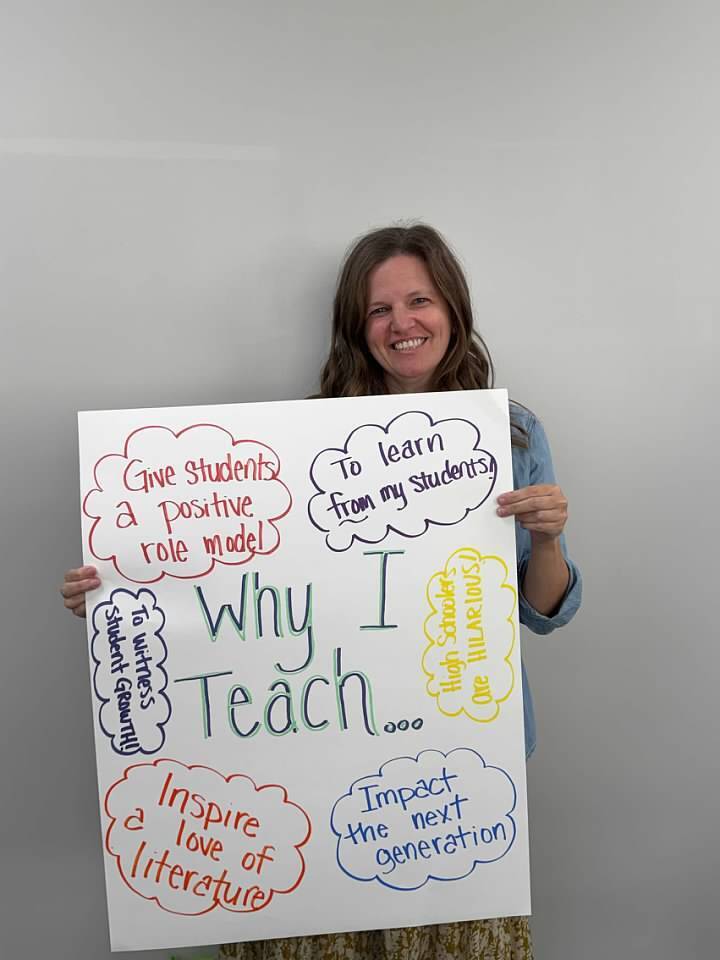 Give Students
a positive
role model
To learn
from my students!
Why I
Teach...
To witness
student GROWTH!
High Schoolers
are HILARIOUS!
Inspire
a love of
literature
Impact
the next
generation